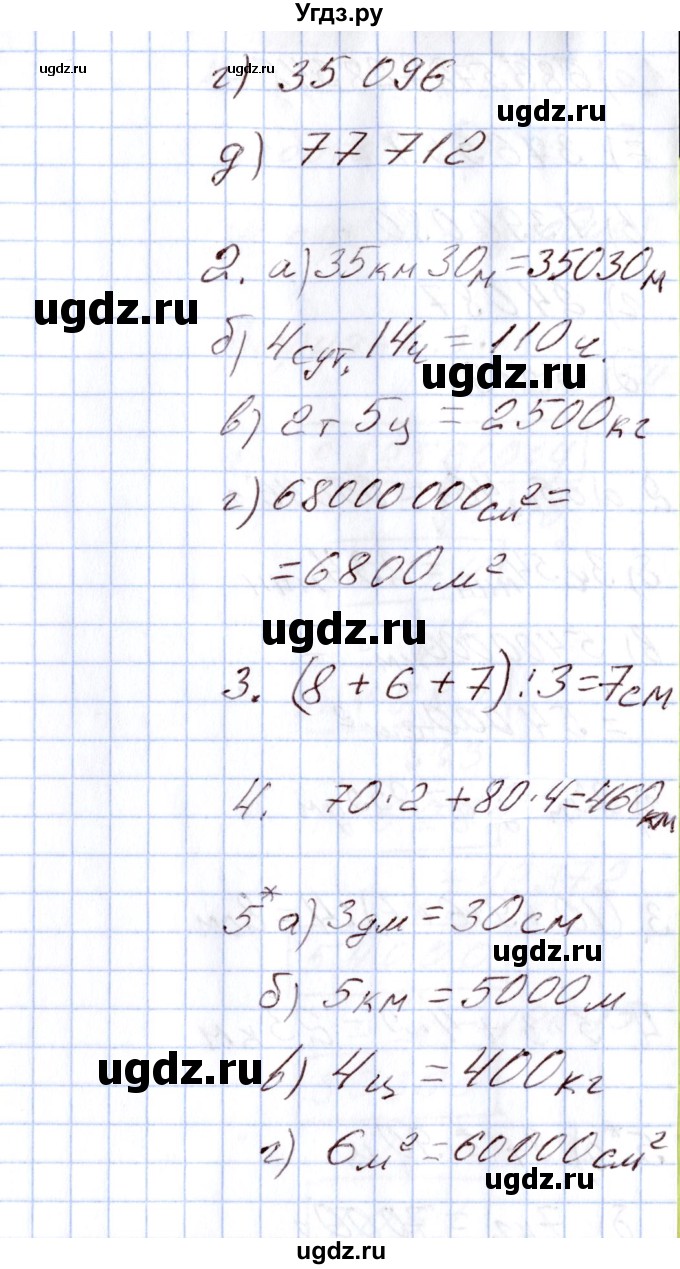 Угдз.ру
ugdz.ru
ugdz.ru
г) 35 096
ugdz.ru
д) 77 712
2. а) 35км 30м = 35030м
ugdz.ru
б) 4сут, 14ч = 110ч.
ugdz.ru
в) 2т 5ц = 2500кг
г) 68000000см² =
= 6800м²
ugdz.ru
3. (8 + 6 + 7) : 3 = 7см
4. 70·2 + 80·4 = 460км
5* а) 3дм = 30см
ugdz.ru
б) 5км = 5000м
ugdz.ru
в) 4ц = 400кг
г) 6м² = 60000см²
ugdz.ru
ugdz.ru